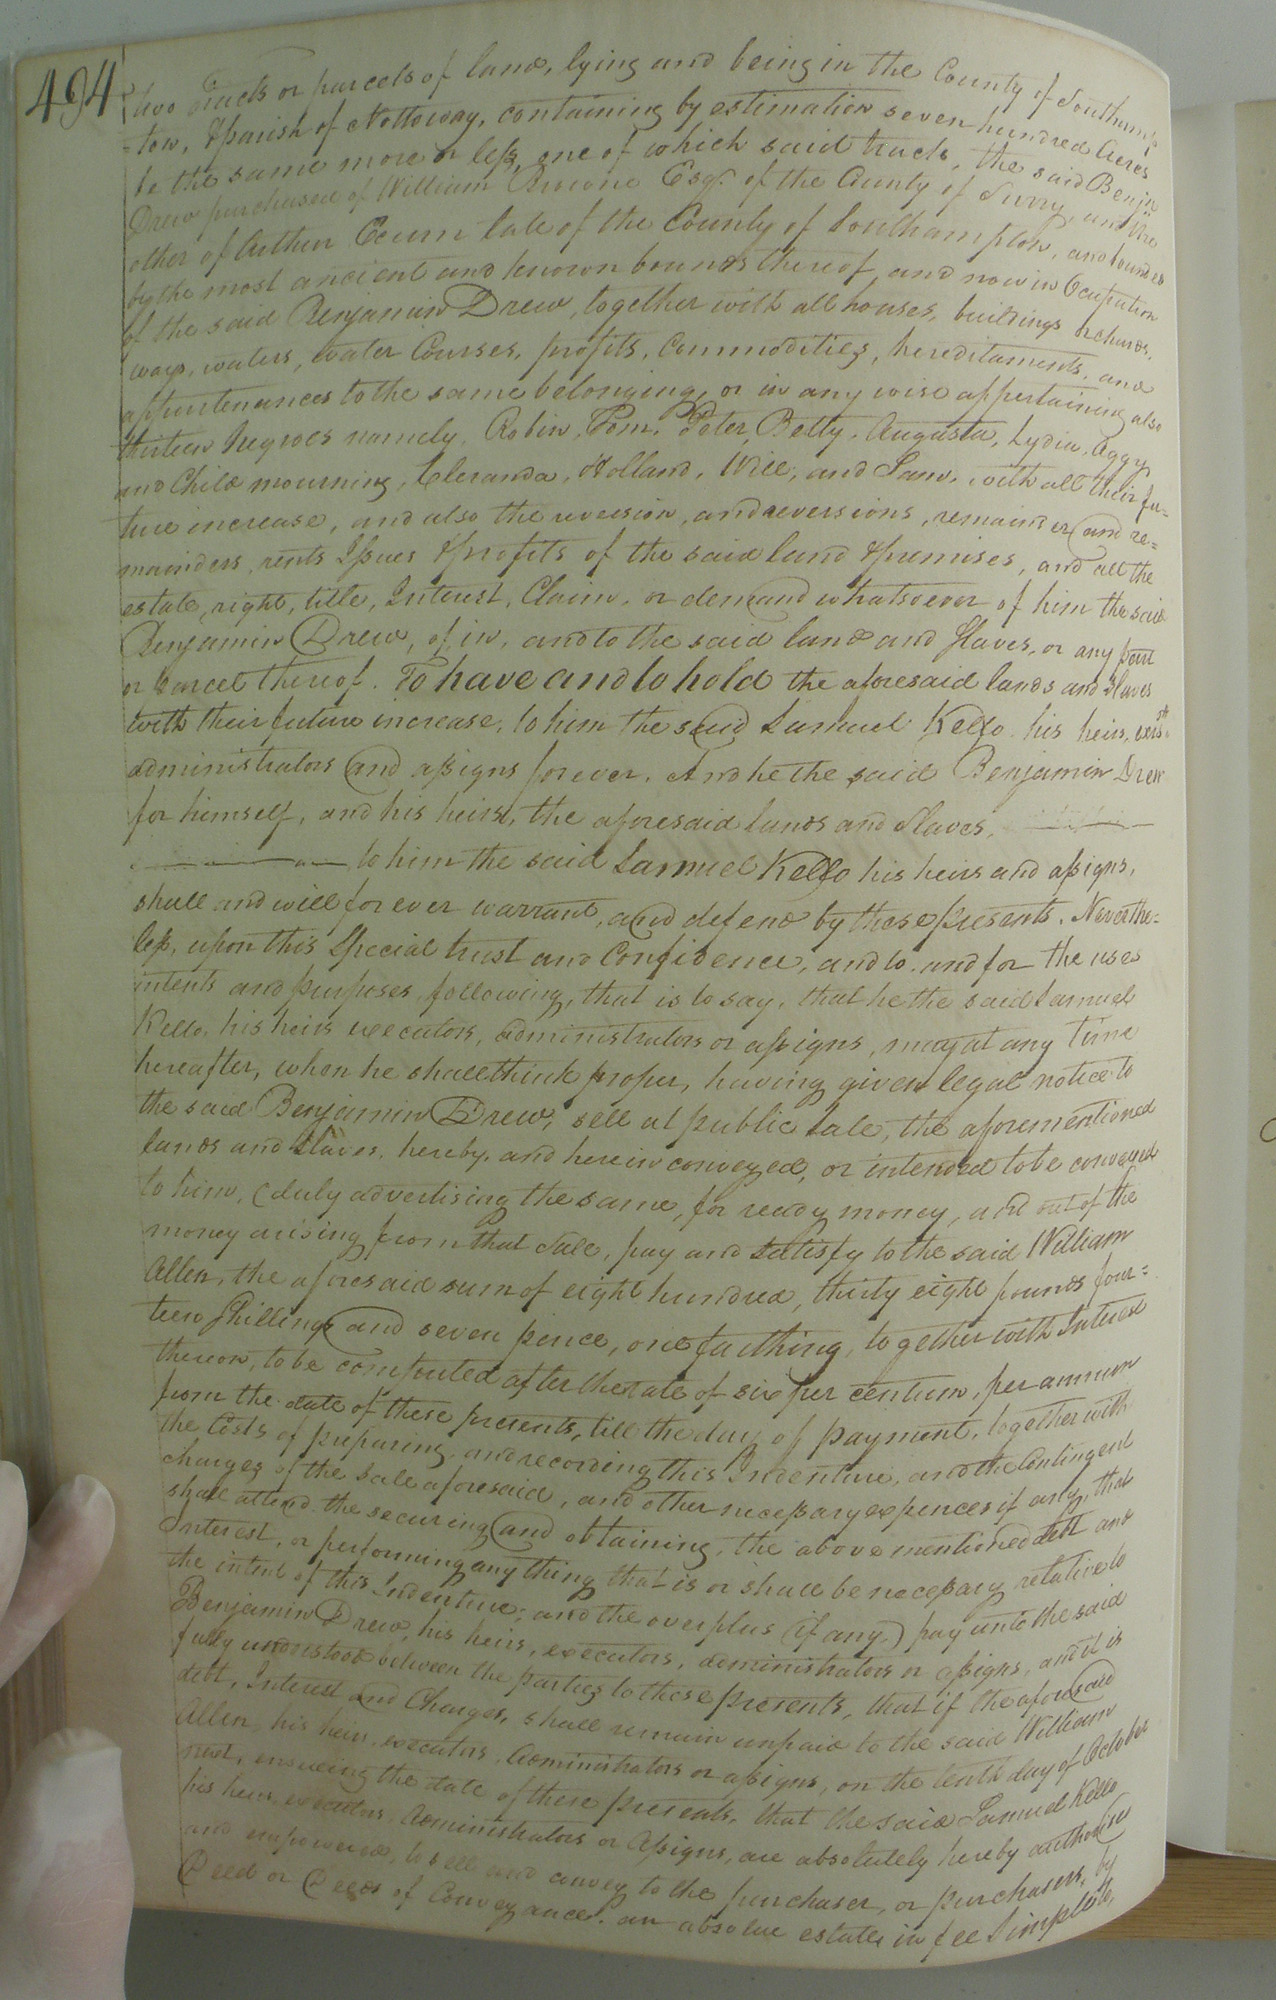 494
two tracts or parcels of land, lying and being in the County of Southamp
=ton, & parish of Nottoway, containing by estimation seven hundred Acres
be the same more or less, one of which said tracts, the said Benjn
Drew purchased of William Browne Esqr. of the County of Surry, and the
other of Arthur Exum late of the County of Southampton, and bounded
by the most ancient and known bounds thereof, and now in Occupation
of the said Benjamin Drew, together with all houses, buildings orchards,
ways, waters, water Courses, profits, Commodities, hereditaments, and
appurtenances to the same belonging, or in any wise appertaining also
thirteen Negroes namely, Robin, Tom, Peter, Betty, Augusta, Lydia, Aggy
and Child mourning, Holland, Will, and Sam, with all their fu=
ture increase, and also the reversion, and reversions, remainder and re=
mainders, rents Issues & profits of the said land & premises, and all the
estate, right, title, Interest, Claim, or demand whatsoever of him the said
Benjamin Drew, of, in, and to the said land and Slaves, or any part
or parcel thereof. To have and to hold the aforesaid lands and Slaves
with their future increase, to him the said Samuel Kello his heirs, exrs.
administrators and assigns forever. And he the said Benjamin Drew
for himself, and his heirs, the aforesaid lands and Slaves,
to him the said Samuel Kello his heirs and assigns,
shall and will forever warrant, and defend by these presents. Neverthe=
less, upon this Special trust and Confidence, and to, and for the uses
intents and purposes following, that is to say, that he the said Samuel
Kello, his heirs executors, administrators or assigns, may at any time
hereafter, when he shall think proper, having given legal notice to
the said Benjamin Drew, sell at public Sale, the aforementioned
lands and Slaves, hereby, and herein conveyed, or intended to be conveyed
to him, (duly advertising the same, for ready money, and out of the
money arising from that Sale, pay and Satisfy to the said William
Allen, the aforesaid sum of eight hundred, thirty eight pounds four=
teen Shillings and seven pence, one farthing, together with Interest
thereon, to be computed after the rate of six per centum, per annum
from the date of these presents, till the day of payment, together with
the Costs of preparing, and recording this Indenture, and the Contingent
charges of the Sale aforesaid, and other necessary expences if any, that
shall attend the securing and obtaining, the above mentioned debt and
Interest, or performing any thing that is or shall be necessary relative to
the intent of this Indenture; and the overplus (if any) pay unto the said
Benjamin Drew, his heirs, executors, administrators or assigns, and it is
fully understood between the parties to these presents, that if the aforesaid
debt, Interest and Charges, shall remain unpaid to the said William
Allen, his heirs, executors, Administrators or assigns, on the tenth day of October
next, ensueing the date of these presents, that the said Samuel Kello
his heirs, executors, Administrators or Assigns, are absolutely hereby authorised
and empowered, to sell and convey to the purchaser, or purchasers, by
Deed or Deeds of Conveyance, an absolute estate, in fee Simple to,